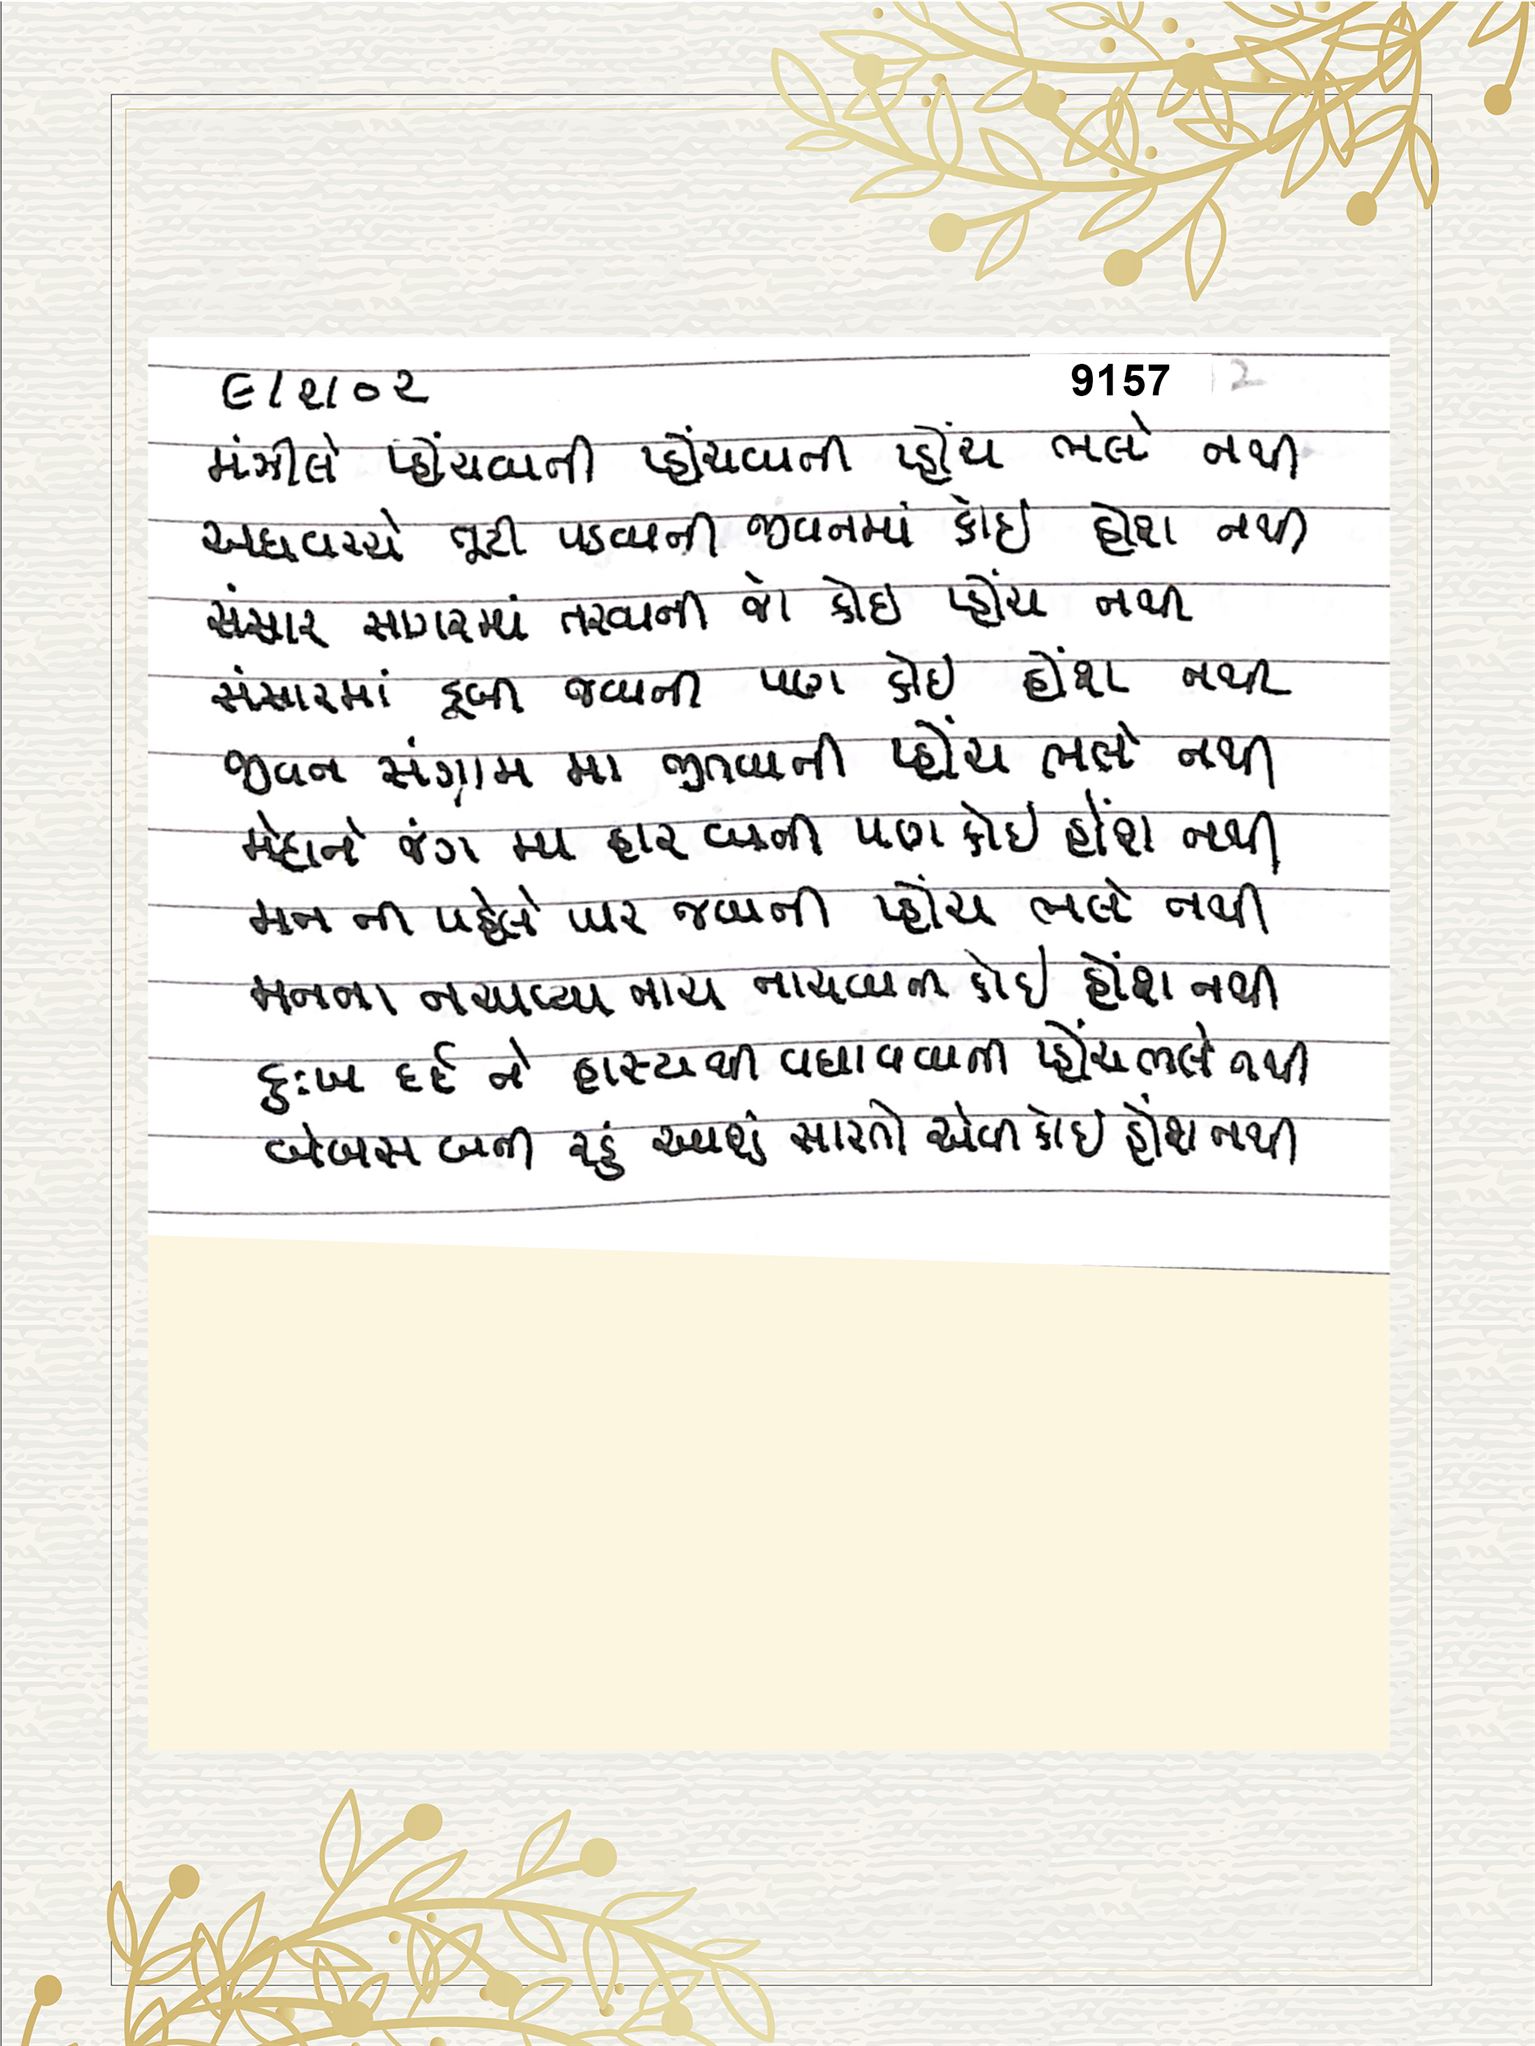 ૯/૨/૦૨
9157
મંઝીલે પ્હોંચવાની પ્હોંચવાની પ્હોંચ ભલે નથી
અધવચ્ચે તૂટી પડવાની જીવનમાં કોઈ હોશ નથી
સંસાર સાગરમાં તરવાની જો કોઇ પ્હોંચ નથી
સંસારમાં ડૂબી જવાની પણ કોઇ હોંશ નથી
જીવન સંગ્રામ મા જીતવાની પ્હોંચ ભલે નથી
મેદાને જંગ મા હાર વાની પણ કોઇ હોંશ નથી
મન ની પહેલે પાર જવાની પ્હોંચ ભલે નથી
મનના નચાવ્યા નાચ નાચવાની કોઇ હોંશ નથી
દુઃખ દર્દ ને હાસ્યથી વધાવવાની પ્હોંચ ભલે નથી
બેબસ બની રડું આશું સારતો એવી કોઇ હોંશ નથી